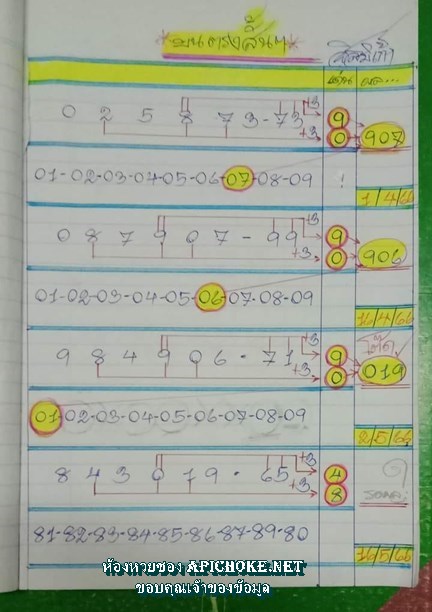 บนตรงสั้นๆ
เด่น ผล...
0 2 5 8 7 3-73 +3 9
+3 0 907
01-02-03-04-05-06-07-08-09
1/4/66
0 8 7 9 0 7 - 99 +3 9
+3 0 906
01-02-03-04-05-06-07-08-09
16/4/66
9 8 4 9 0 6 - 71 +3 9
โต๊ด
+3 0 019
01-02-03-04-05-06-07-08-09
2/5/66
8 4 3 0 19 - 65 +3 4
+3 8
81-82-83-84-85-86-87-89-80
16/5/66
ห้องหวยซอง APICHOKE.NET
ขอบคุณเจ้าของข้อมูล